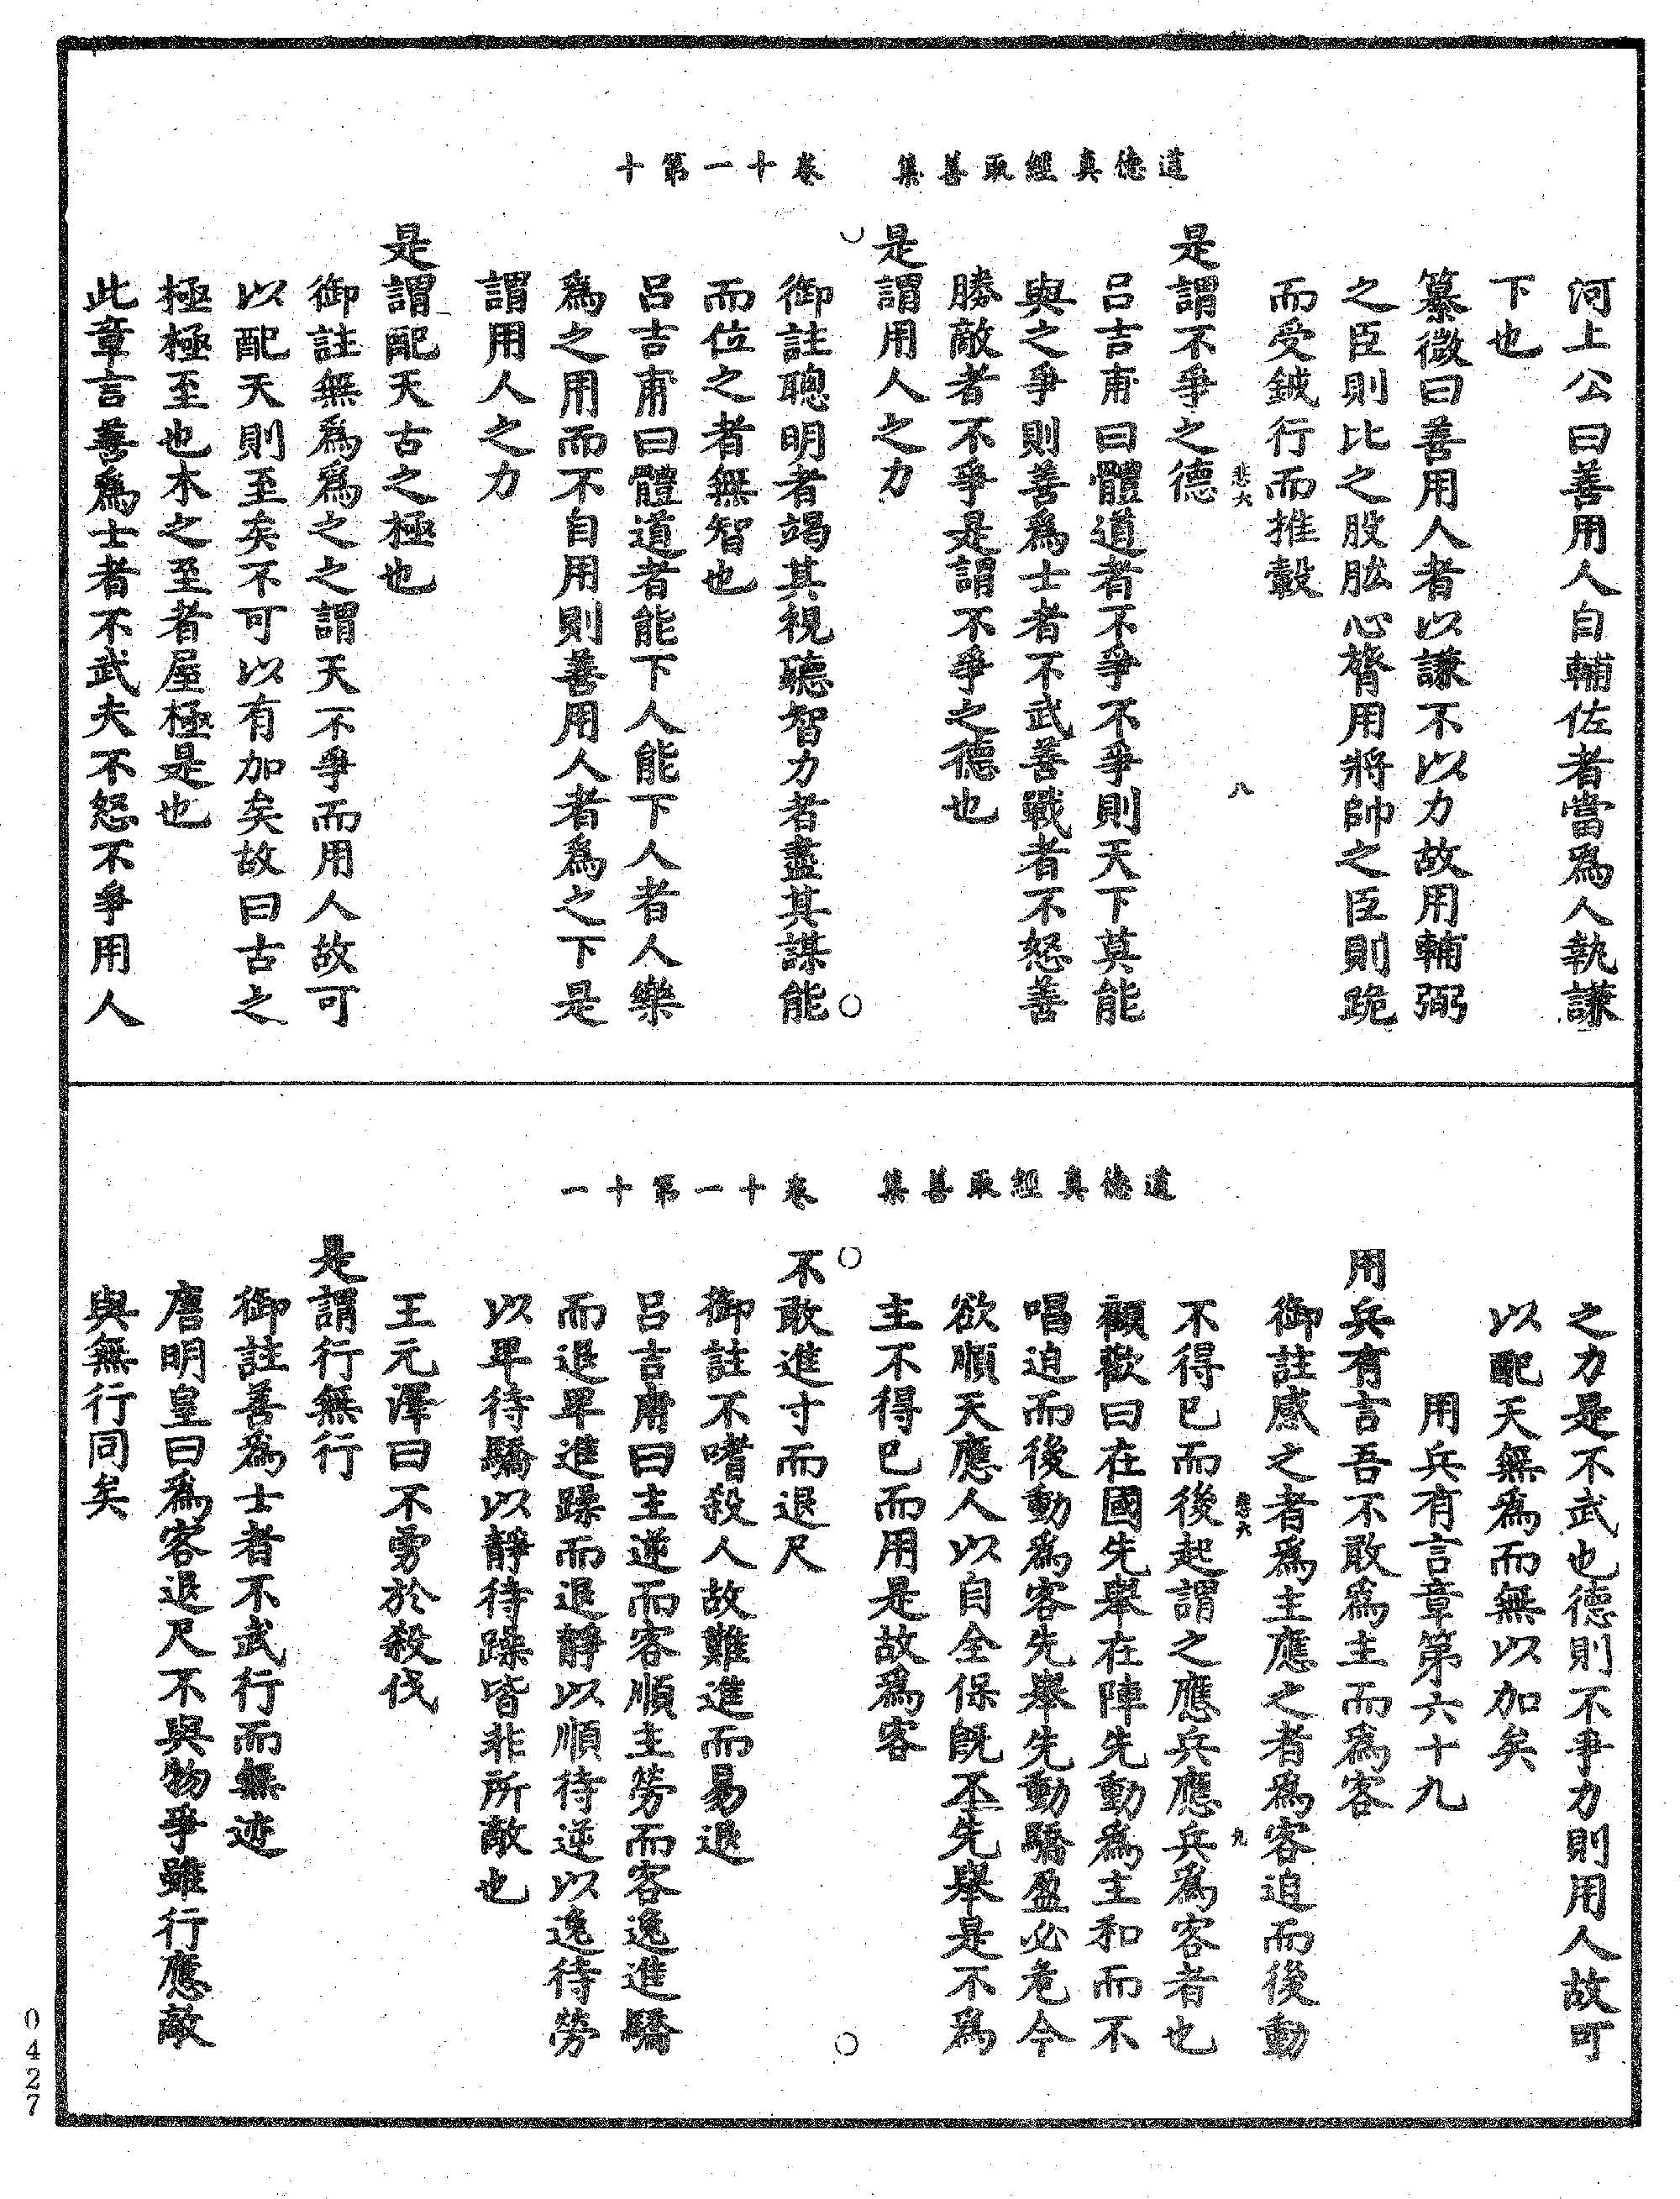 道德真經取善集　卷十一第十
河上公曰善用人自輔佐者當爲人執謙
下也
纂微曰善用人者以謙不以力故用輔弼
之臣則比之股肱心膂用將帥之臣則跪
而受鉞行而推轂
悲六　八
是謂不爭之德
呂吉甫曰體道者不爭不爭則天下莫能
與之爭則善爲士者不武善戰者不怒善
勝敵者不爭是謂不爭之德也
是謂用人之力
御註聰明者竭其視聽智力者盡其謀能
而位之者無智也
呂吉甫曰體道者能下人能下人者人樂
爲之用而不自用則善用人者爲之下是
謂用人之力
是謂配天古之極也
御註無爲爲之之謂天不爭而用人故可
以配天則至矣不可以有加矣故曰古之
極極至也木之至者屋極是也
此章言善爲士者不武夫不怒不爭用人
道德真經取善集　卷十一第十一
之力是不武也德則不爭力則用人故可
以配天無爲而無以加矣
用兵有言章第六十九
用兵有言吾不敢爲主而爲客
御註感之者爲主應之者爲客迫而後動
悲六　九
不得已而後起謂之應兵應兵爲客者也
顧歡曰在國先舉在陣先動爲主和而不
唱迫而後動爲客先舉先動驕盈必危今
欲順天應人以自全保旣不先舉是不爲
主不得已而用是故爲客
不敢進寸而退尺
御註不嗜殺人故難進而易退
呂吉甫曰主逆而客順主勞而客逸進驕
而退卑進躁而退靜以順待逆以逸待勞
以卑待驕以靜待躁皆非所敵也
王元澤曰不勇於殺伐
是謂行無行
御註善爲士者不武行而無迹
唐明皇曰爲客退尺不與物爭雖行應敵
與無行同矣
0427